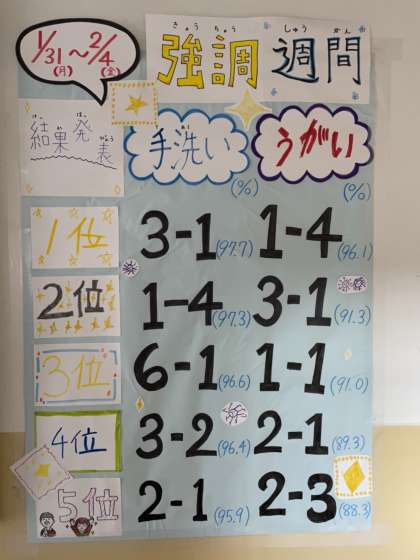 1/31〜2/4
(月) (金)
きょう ちょう しゅう かん
強調週間
けっ か はっ ぴょう
結果発表
手洗い うがい
(%) (%)
1位 3-1 (97.7) 1-4 (96.1)
2位 1-4 (97.3) 3-1 (91.3)
3位 6-1 (96.6) 1-1 (91.0)
4位 3-2 (96.4) 2-1 (89.3)
5位 2-1 (95.9) 2-3 (88.3)